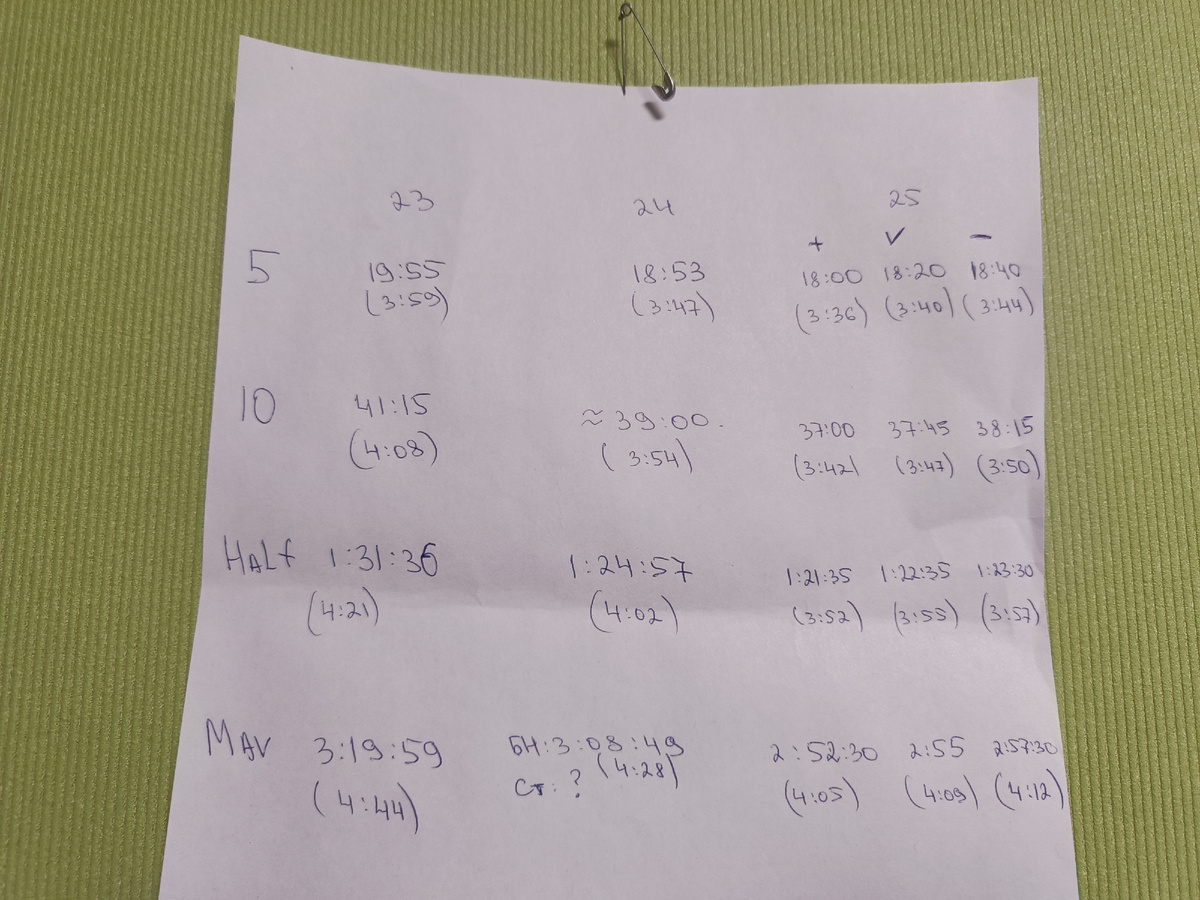 23 24 25
+ ✓ −
5 19:55 18:53 18:00 18:20 18:40
(3:59) (3:47) (3:36) (3:40) (3:44)
10 41:15 ≈39:00. 37:00 37:45 38:15
(4:08) (3:54) (3:42) (3:47) (3:50)
HALf 1:31:36 1:24:57 1:21:35 1:22:35 1:23:30
(4:21) (4:02) (3:52) (3:55) (3:57)
MAV 3:19:59 БН:3:08:49 2:52:30 2:55 2:57:30
(4:44) Ст: ? (4:28) (4:05) (4:09) (4:12)